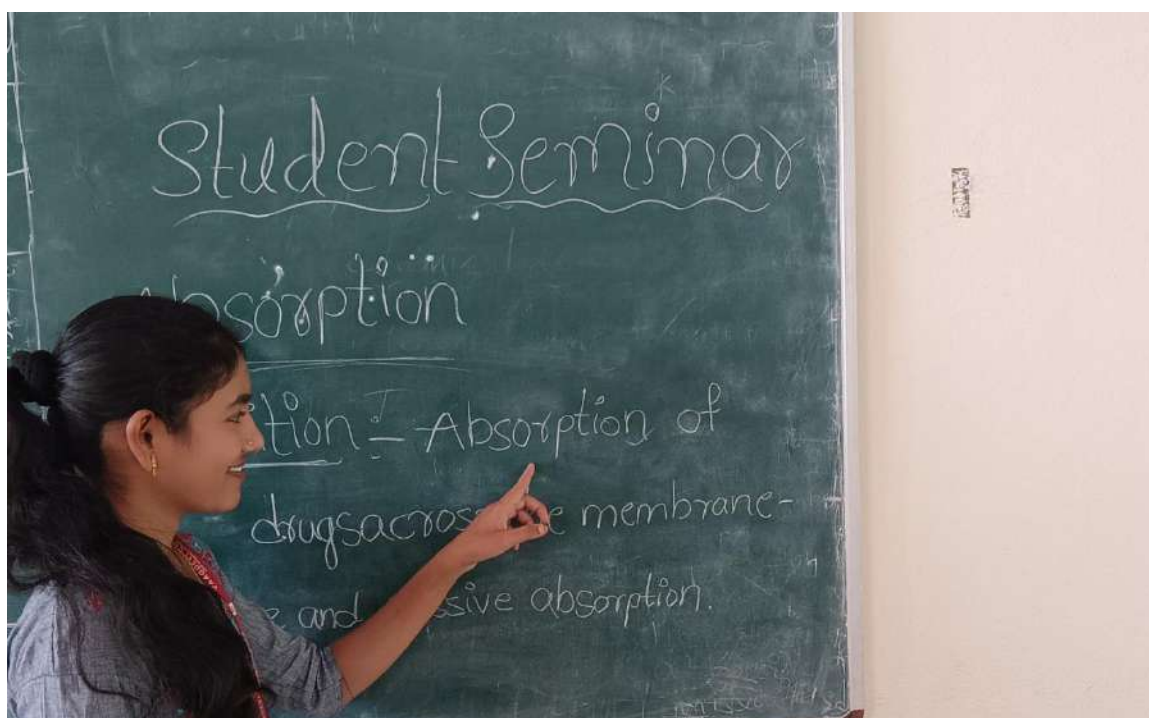 Student Seminar
Absorption
ition :- Absorption of
drugs across membrane-
and absorption.